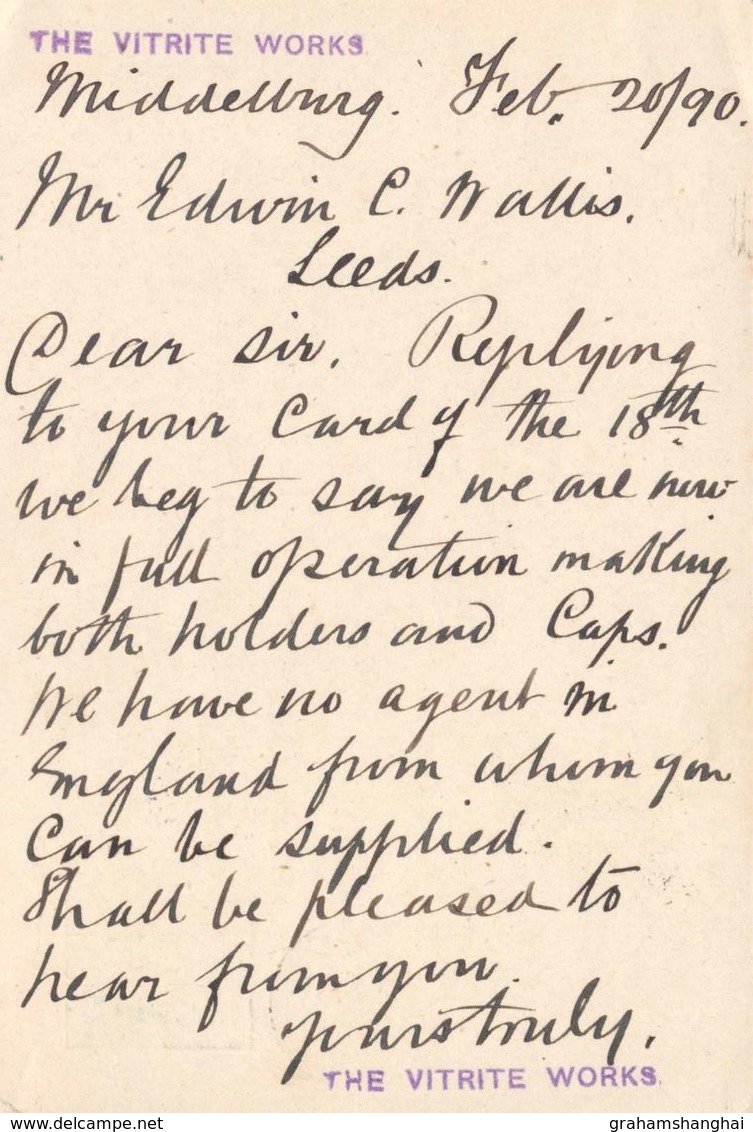 THE VITRITE WORKS
Middelburg. Feb. 20/90.
Mr Edwin C. Wallis.
Leeds.
Dear Sir. Replying
to your Card of the 18th
we beg to say we are now
in full operation making
both holders and Caps.
We have no agent in
England from whom you
Can be supplied.
Shall be pleased to
hear from you.
yours truly,
THE VITRITE WORKS
www.delcampe.net
grahamshanghai